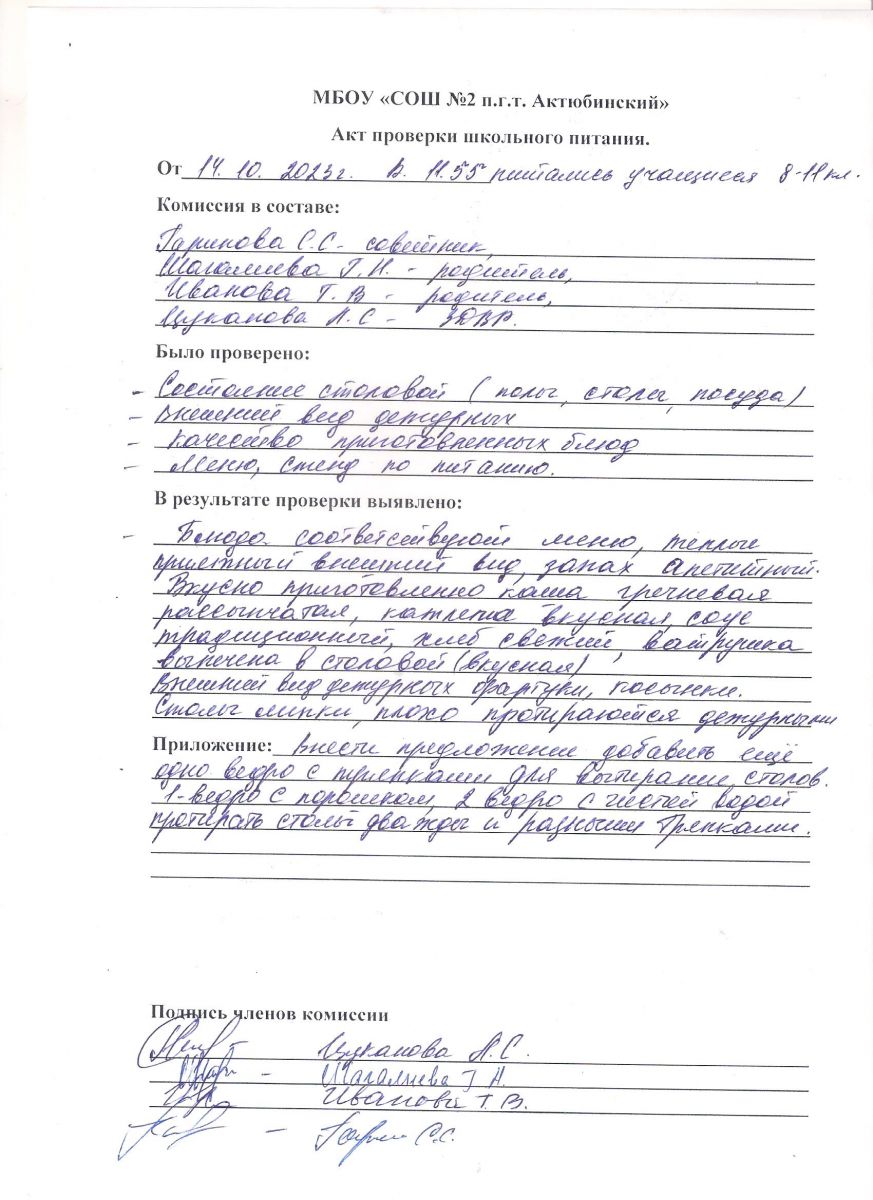 МБОУ «СОШ №2 п.г.т. Актюбинский»
Акт проверки школьного питания.
От 14. 10. 2023г. В. 11.55 питались учащиеся 8-11 кл.
Комиссия в составе:
Гарипова С.С - советник,
Шагалиева Г.Н. - родитель,
Иванова Т. В - родитель,
Цуканова Л.С - ЗДВР.
Было проверено:
- Состояние столовой ( полы, столы, посуда)
- Внешний вид дежурных
- Качество приготовленных блюд
- Меню, стенд по питанию.
В результате проверки выявлено:
- Блюда соответствуют меню, теплые
приятный внешний вид, запах апетитный.
Вкусно приготовленно каша гречневая
рассыпчатая, катлета вкусная, соус
традиционный, хлеб свежий, ватрушка
выпечена в столовой (вкусная)
Внешний вид дежурных фартуки, косынки.
Столы липки, плохо протираются дежурными
Приложение: Внести предложение добавить ещё
одно ведро с тряпками для вытирании столов.
1-ведро с порошком, 2 ведро с чистой водой
протирать столы дважды и разными тряпками.
Подпись членов комиссии
- Цуканова Л.С.
- Шагалиева Г Н.
- Иванова Т. В.
- Гарип С.С.